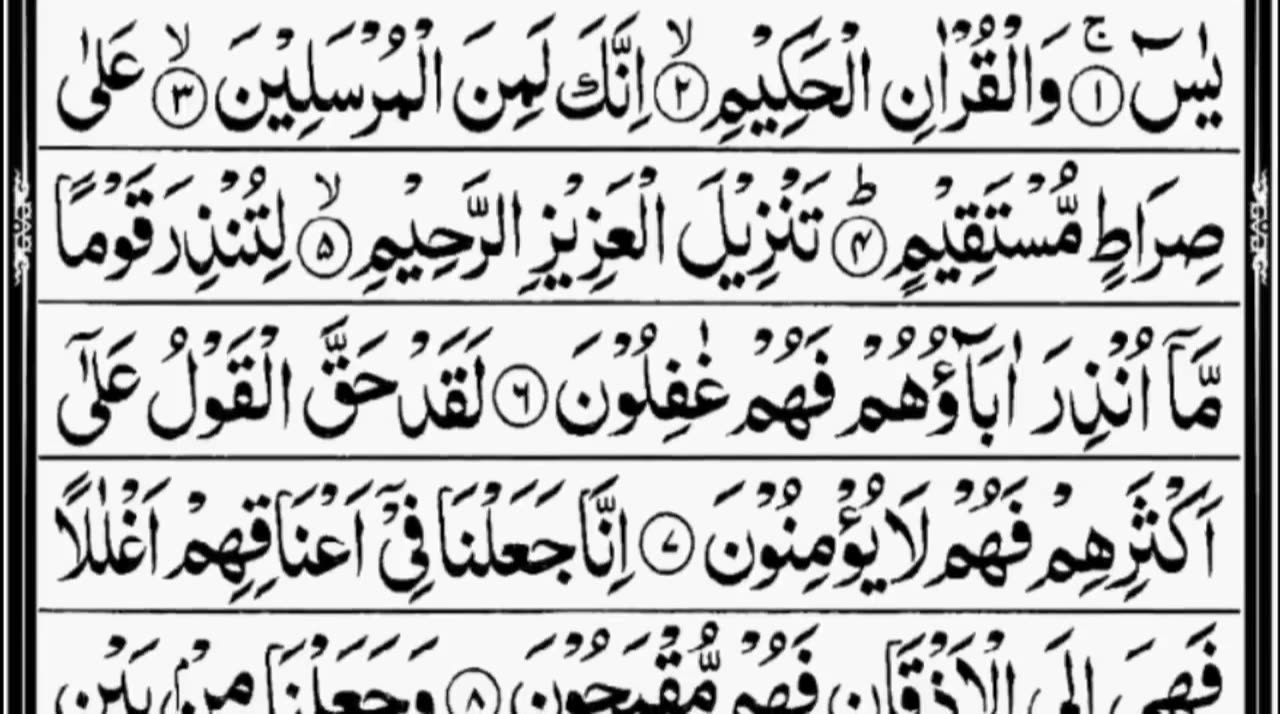 يٰسٓ ۚ﴿۱﴾ وَالْقُرْاٰنِ الْحَكِيْمِ ۙ﴿۲﴾ اِنَّكَ لَمِنَ الْمُرْسَلِيْنَ ۙ﴿۳﴾ عَلٰى
صِرَاطٍ مُّسْتَقِيْمٍ ؕ﴿۴﴾ تَنْزِيْلَ الْعَزِيْزِ الرَّحِيْمِ ۙ﴿۵﴾ لِتُنْذِرَ قَوْمًا
مَّاۤ اُنْذِرَ اٰبَآؤُهُمْ فَهُمْ غٰفِلُوْنَ ﴿۶﴾ لَقَدْ حَقَّ الْقَوْلُ عَلٰۤى
اَكْثَرِهِمْ فَهُمْ لَا يُؤْمِنُوْنَ ﴿۷﴾ اِنَّا جَعَلْنَا فِيْۤ اَعْنَاقِهِمْ اَغْلٰلًا
فَهِيَ اِلَى الْاَذْقَانِ فَهُمْ مُّقْمَحُوْنَ ﴿۸﴾ وَجَعَلْنَا مِنْۢ بَيْنِ